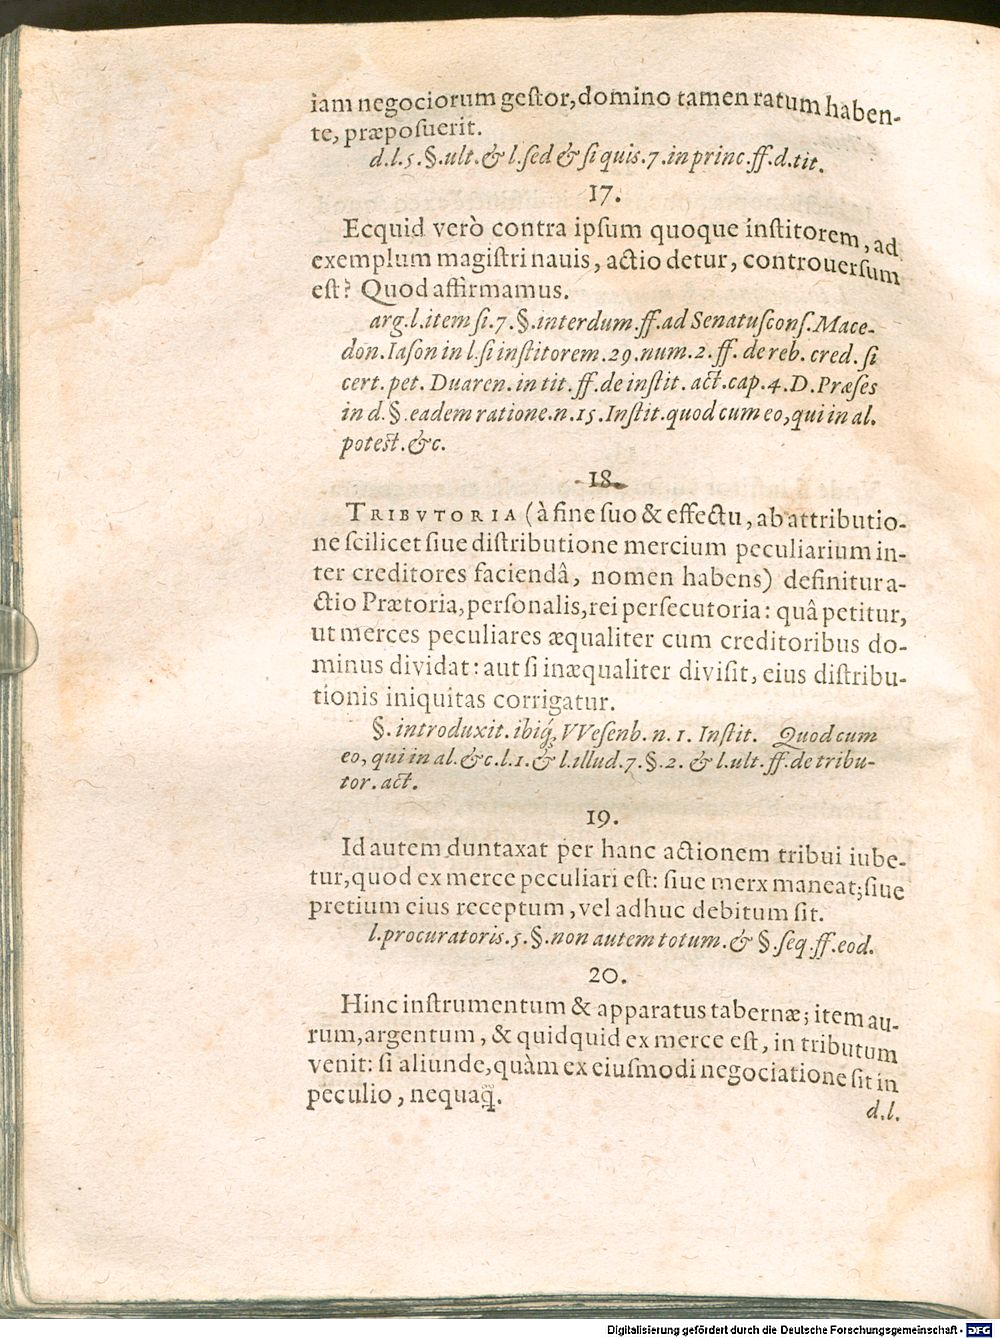 iam negociorum gestor, domino tamen ratum haben-
te, præposuerit.
d.l.5.§.ult.& l.sed & si quis.7.in princ.ff.d.tit.
17.
Ecquid verò contra ipsum quoque institorem, ad
exemplum magistri nauis, actio detur, controuersum
est? Quod affirmamus.
arg.l.item si.7.§.interdum.ff.ad Senatuscons.Mace-
don.Iason in l.si institorem.29.num.2.ff. de reb. cred. si
cert. pet. Duaren. in tit. ff. de instit. act. cap. 4. D. Præses
in d.§.eadem ratione.n.15.Instit.quod cum eo,qui in al.
potest.&c.
18.
TRIBVTORIA (à fine suo & effectu, ab attributio-
ne scilicet siue distributione mercium peculiarium in-
ter creditores faciendâ, nomen habens) definitur a-
ctio Prætoria, personalis, rei persecutoria: quâ petitur,
ut merces peculiares æqualiter cum creditoribus do-
minus dividat: aut si inæqualiter divisit, eius distribu-
tionis iniquitas corrigatur.
§. introduxit. ibiq́; VVesenb. n. 1. Instit. Quod cum
eo, qui in al.&c.l.1.& l.illud.7.§.2. & l.ult.ff.de tribu-
tor. act.
19.
Id autem duntaxat per hanc actionem tribui iube-
tur, quod ex merce peculiari est: siue merx maneat; siue
pretium eius receptum, vel adhuc debitum sit.
l.procuratoris.5.§.non autem totum.& §.seq.ff.eod.
20.
Hinc instrumentum & apparatus tabernæ; item au-
rum, argentum, & quidquid ex merce est, in tributum
venit: si aliunde, quàm ex eiusmodi negociatione sit in
peculio, nequaq̃.
d.l.
Digitalisierung gefördert durch die Deutsche Forschungsgemeinschaft - DFG